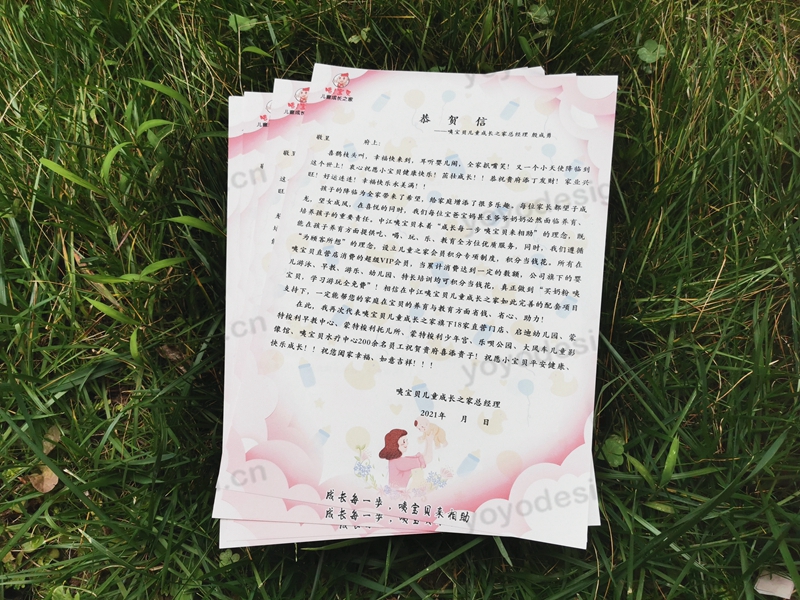 儿童成长之家
恭 贺 信
——噢宝贝儿童成长之家总经理 殷成勇
敬呈 府上：
喜鹊枝头叫，幸福快来到，耳听婴儿闹，全家抿嘴笑！又一个小天使降临到
这个世上！衷心祝愿小宝贝健康快乐！茁壮成长！！恭祝贵府添丁发财！家业兴
旺！好运连连！幸福快乐永美满！！
孩子的降临为全家带来了希望，给家庭增添了很多乐趣。每位家长都望子成
龙，望女成凤，在喜悦的同时，我们每位宝爸宝妈甚至爷爷奶奶必然面临养育、
培养孩子的重要责任。中江噢宝贝本着“成长每一步噢宝贝来相助”的理念，既
能在孩子养育方面提供吃、喝、玩、乐、教育全方位优质服务，同时，我们遵循
“为顾客所想”的理念，设立儿童之家会员积分专项制度，积分当钱花，所有在
噢宝贝直营店消费的超级VIP会员，当累计消费达到一定的数额，公司旗下的婴
儿游泳、早教、游乐、幼儿园、特长培训均可积分当钱花，真正做到“买奶粉 噢
宝贝，学习游玩全免费”！相信在中江噢宝贝儿童成长之家如此完善的配套项目
支持下，一定能帮您的家庭在宝贝的养育与教育方面省钱、省心、助力！
在此，我再次代表噢宝贝儿童成长之家旗下18家直营门店、启迪幼儿园、蒙
特梭利早教中心、蒙特梭利托儿所、蒙特梭利少年宫、乐呗公园、大风车儿童影
像馆、噢宝贝水疗中心200余名员工祝贺贵府喜添贵子！祝愿小宝贝平安健康、
快乐成长！！祝您阖家幸福、如意吉祥！！！
噢宝贝儿童成长之家总经理
2021年 月 日
成长每一步，噢宝贝来相助
成长每一步，噢宝贝
yoyodesign.cn